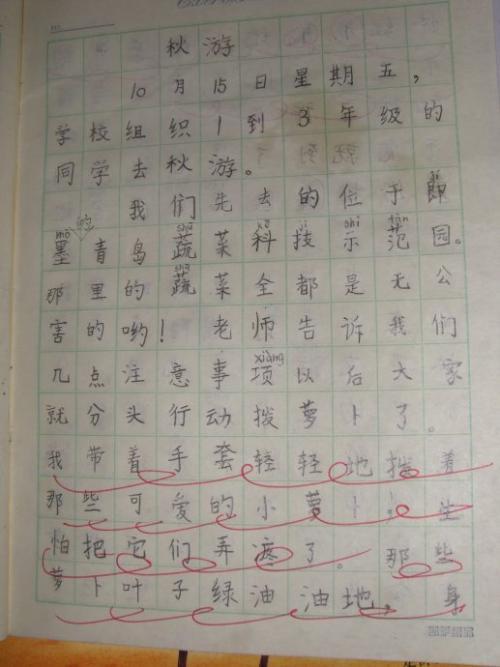 秋游
10月15日星期五，
学校组织1到3年级的
同学去秋游。
我们先去的位于即
墨的青岛蔬菜科技示范园。
那里的蔬菜全都是无公
害的哟！老师告诉我们
几点注意事项以后大家
就分头行动拨萝卜了。
我带着手套轻轻地拨着
那些可爱的小萝卜，生
怕把它们弄疼了。那些
萝卜叶子绿油油地，身